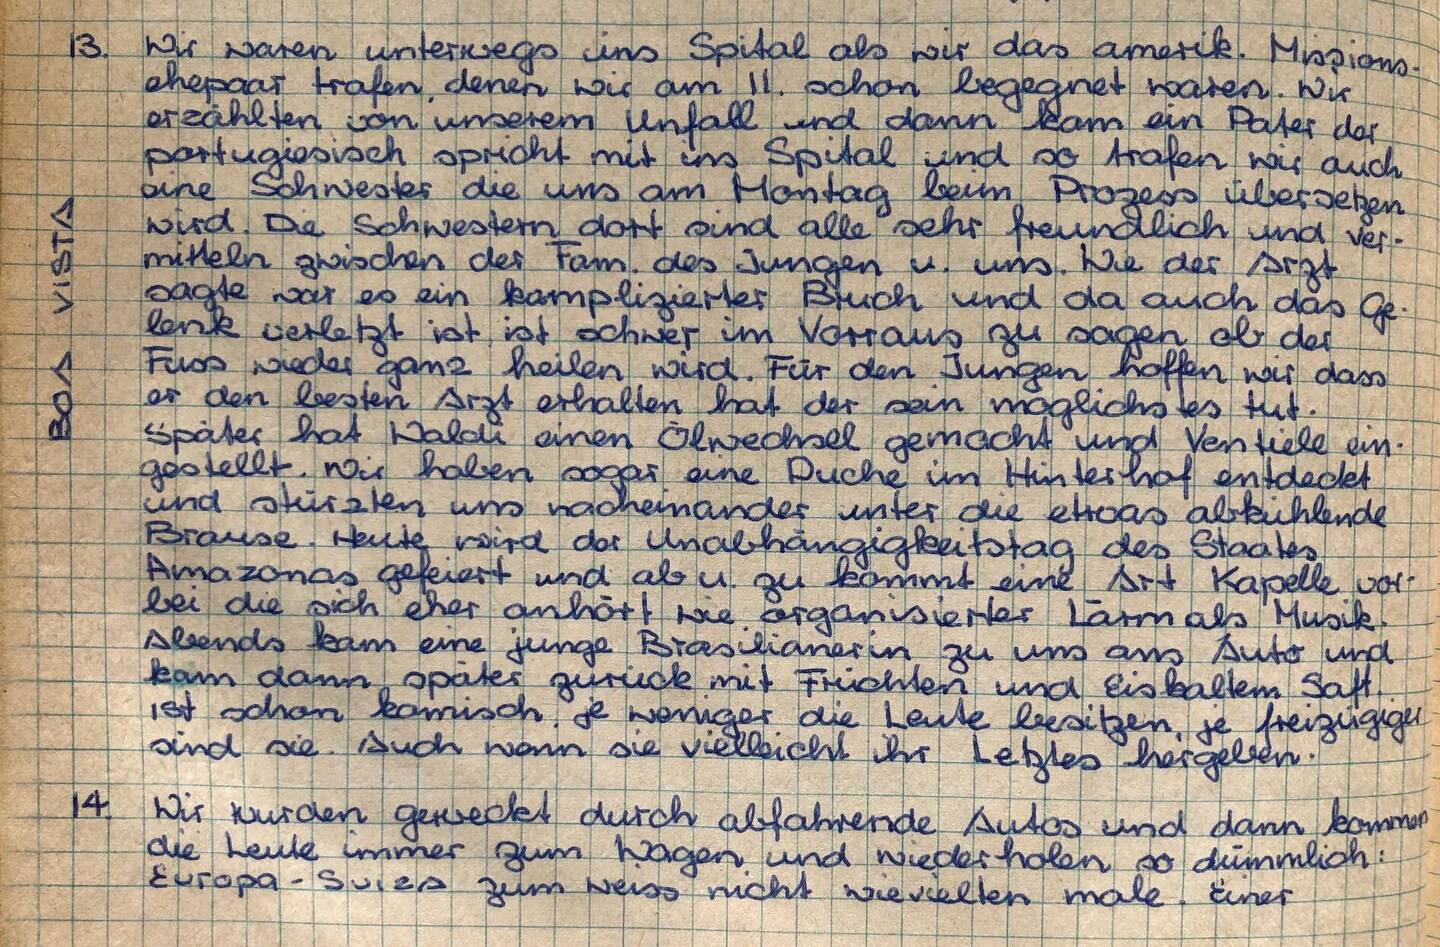 13. Wir waren unterwegs ins Spital als wir das amerik. Missions-
ehepaar trafen, denen wir am 11. schon begegnet waren. Wir
erzählten von unserem Unfall und dann kam ein Pater der
portugiesisch spricht mit ins Spital und so trafen wir auch
eine Schwester die uns am Montag beim Prozess übersetzen
wird. Die Schwestern dort sind alle sehr freundlich und ver-
mitteln zwischen der Fam. des Jungen u. uns. Wie der Arzt
sagte war es ein komplizierter Bruch und da auch das Ge-
lenk verletzt ist, ist schwer im Vorraus zu sagen ob der
Fuss wieder ganz heilen wird. Für den Jungen hoffen wir dass
er den besten Arzt erhalten hat der sein möglichstes tut.
Später hat Waldi einen Ölwechsel gemacht und Ventiele ein-
gestellt. Wir haben sogar eine Duche im Hinterhof entdeckt
und stürzten uns nacheinander unter die etwas abkühlende
Brause. Heute wird der Unabhängigkeitstag des Staates
Amazonas gefeiert und ab u. zu kommt eine Art Kapelle vor-
bei die sich eher anhört wie organisierter Lärm als Musik.
Abends kam eine junge Brasilianerin zu uns ans Auto und
kam dann später zurück mit Früchten und Eiskaltem Saft.
Ist schon komisch, je weniger die Leute besitzen, je freizügiger
sind sie. Auch wenn sie vielleicht ihr Letztes hergeben.
BOA VISTA
14. Wir wurden geweckt durch abfahrende Autos und dann kommen
die Leute immer zum Wagen und wiederholen so dümmlich:
Europa-Suiza zum weiss nicht wievielten male. Einer